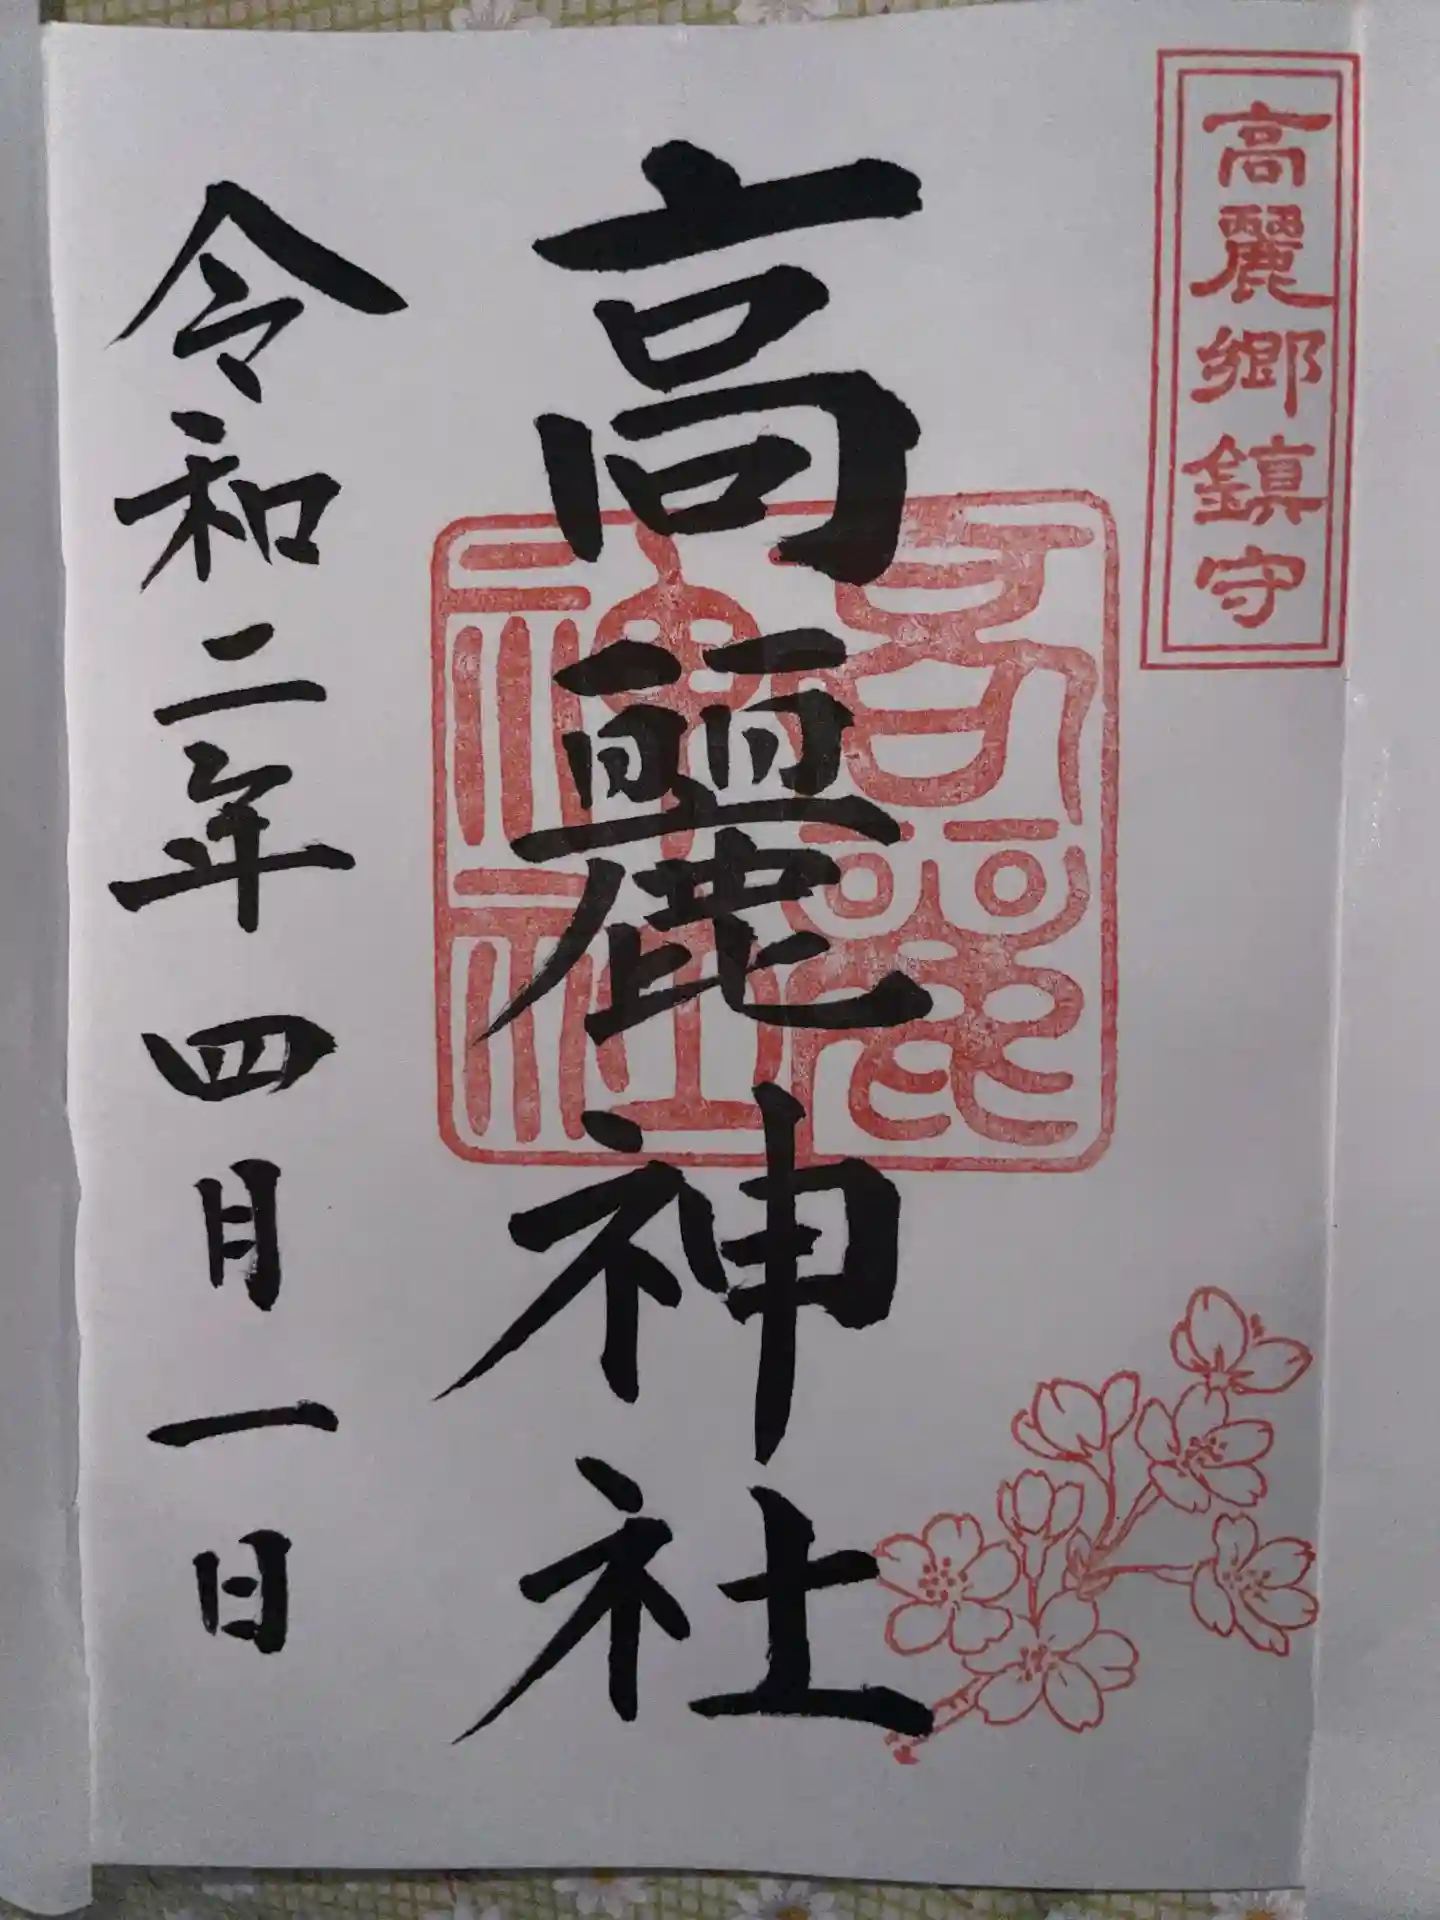 高麗郷鎮守
高麗神社
高麗神社
令和二年四月一日